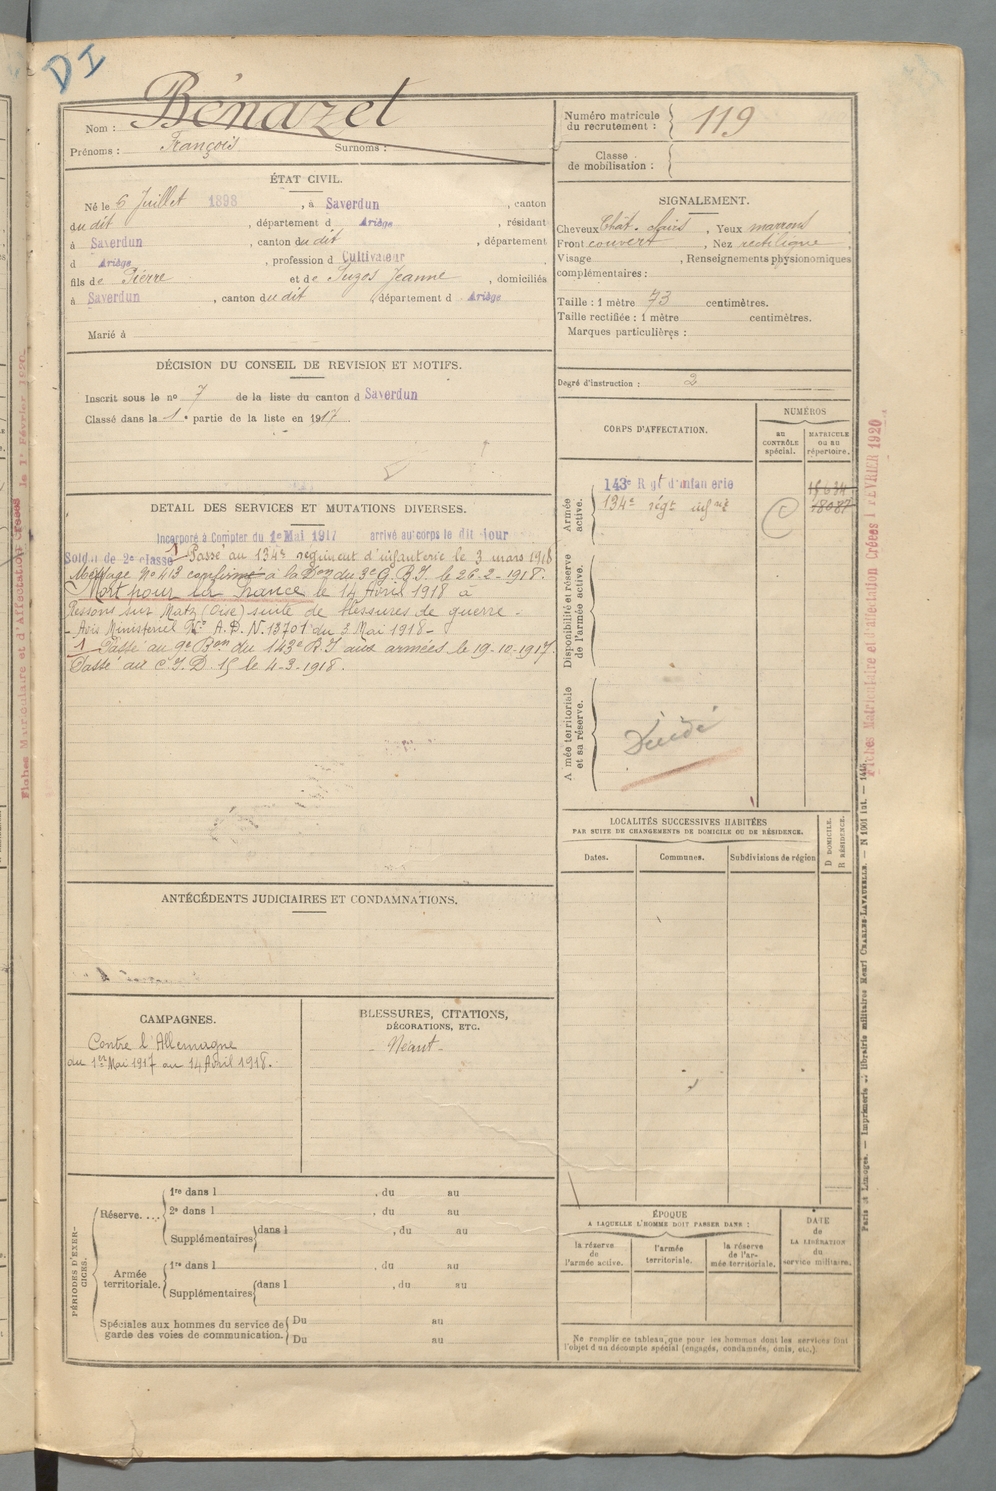 DI
Bénazet
Nom :
Prénoms : François Surnoms :
Numéro matricule
du recrutement : 119
Classe
de mobilisation :
ÉTAT CIVIL.
Né le 6 Juillet 1898, à Saverdun, canton
du dit, département d Ariège, résidant
à Saverdun, canton du dit, département
d Ariège, profession d Cultivateur
fils de Pierre et de Suzos Jeanne, domiciliés
à Saverdun, canton du dit, département d Ariège
Marié à
SIGNALEMENT.
Cheveux Chât. clairs, Yeux marrons
Front couvert, Nez rectiligne
Visage , Renseignements physionomiques
complémentaires :
Taille : 1 mètre 73 centimètres.
Taille rectifiée : 1 mètre centimètres.
Marques particulières :
Degré d'instruction : 2
DÉCISION DU CONSEIL DE REVISION ET MOTIFS.
Inscrit sous le no 7 de la liste du canton d Saverdun
Classé dans la 1e partie de la liste en 1917.
DÉTAIL DES SERVICES ET MUTATIONS DIVERSES.
Incorporé à Compter du 1e Mai 1917 arrivé au corps le dit Jour
Soldat de 2e classe 1 Passé au 134e régiment d'infanterie le 3 mars 1918
Message No 413 confirmé à la Don du 3e G.B.I. le 26-2-1918.
Mort pour la France le 14 Avril 1918 à
Ressons sur Matz (Oise) suite de blessures de guerre -
- Avis Ministériel No A.D. N. 13701 du 3 Mai 1918 -
1 Passé au 9e Bon du 143e R.I aux armées le 19-10-1917.
Passé au C.I.D. 15 le 4-3-1918.
CORPS D'AFFECTATION.
NUMÉROS
au
CONTRÔLE
spécial.
MATRICULE
ou au
répertoire.
Armée
active.
143e Rgt d'infanterie
134e régt infrie
18634
18087
Disponibilité et réserve
de l'armée active.
Armée territoriale
et sa réserve.
Décédé
LOCALITÉS SUCCESSIVES HABITÉES
PAR SUITE DE CHANGEMENTS DE DOMICILE OU DE RÉSIDENCE.
Dates.
Communes.
Subdivisions de région
D DOMICILE.
R RÉSIDENCE.
ANTÉCÉDENTS JUDICIAIRES ET CONDAMNATIONS.
CAMPAGNES.
Contre l'Allemagne
du 1er Mai 1917 au 14 Avril 1918.
BLESSURES, CITATIONS,
DÉCORATIONS, ETC.
- Néant -
PÉRIODES D'EXER-
CICES.
Réserve....
1re dans l , du au
2e dans l , du au
Supplémentaires dans l , du au
Armée
territoriale.
1re dans l , du au
Supplémentaires dans l , du au
Spéciales aux hommes du service de
garde des voies de communication.
Du au
Du au
ÉPOQUE
A LAQUELLE L'HOMME DOIT PASSER DANS :
la réserve
de
l'armée active.
l'armée
territoriale.
la réserve
de l'ar-
mée territoriale.
DATE
de
LA LIBÉRATION
du
service militaire.
Ne remplir ce tableau que pour les hommes dont les services font
l'objet d'un décompte spécial (engagés, condamnés, omis, etc.)
Fiches Matriculaire et d'affectation Créées 1 FÉVRIER 1920
Paris et Limoges. — Imprimerie et librairie militaires Henri CHARLES-LAVAUZELLE. — N 1001 int. — 1445
Fiches Matriculaire et d'Affectation Créées le 1er Février 1920